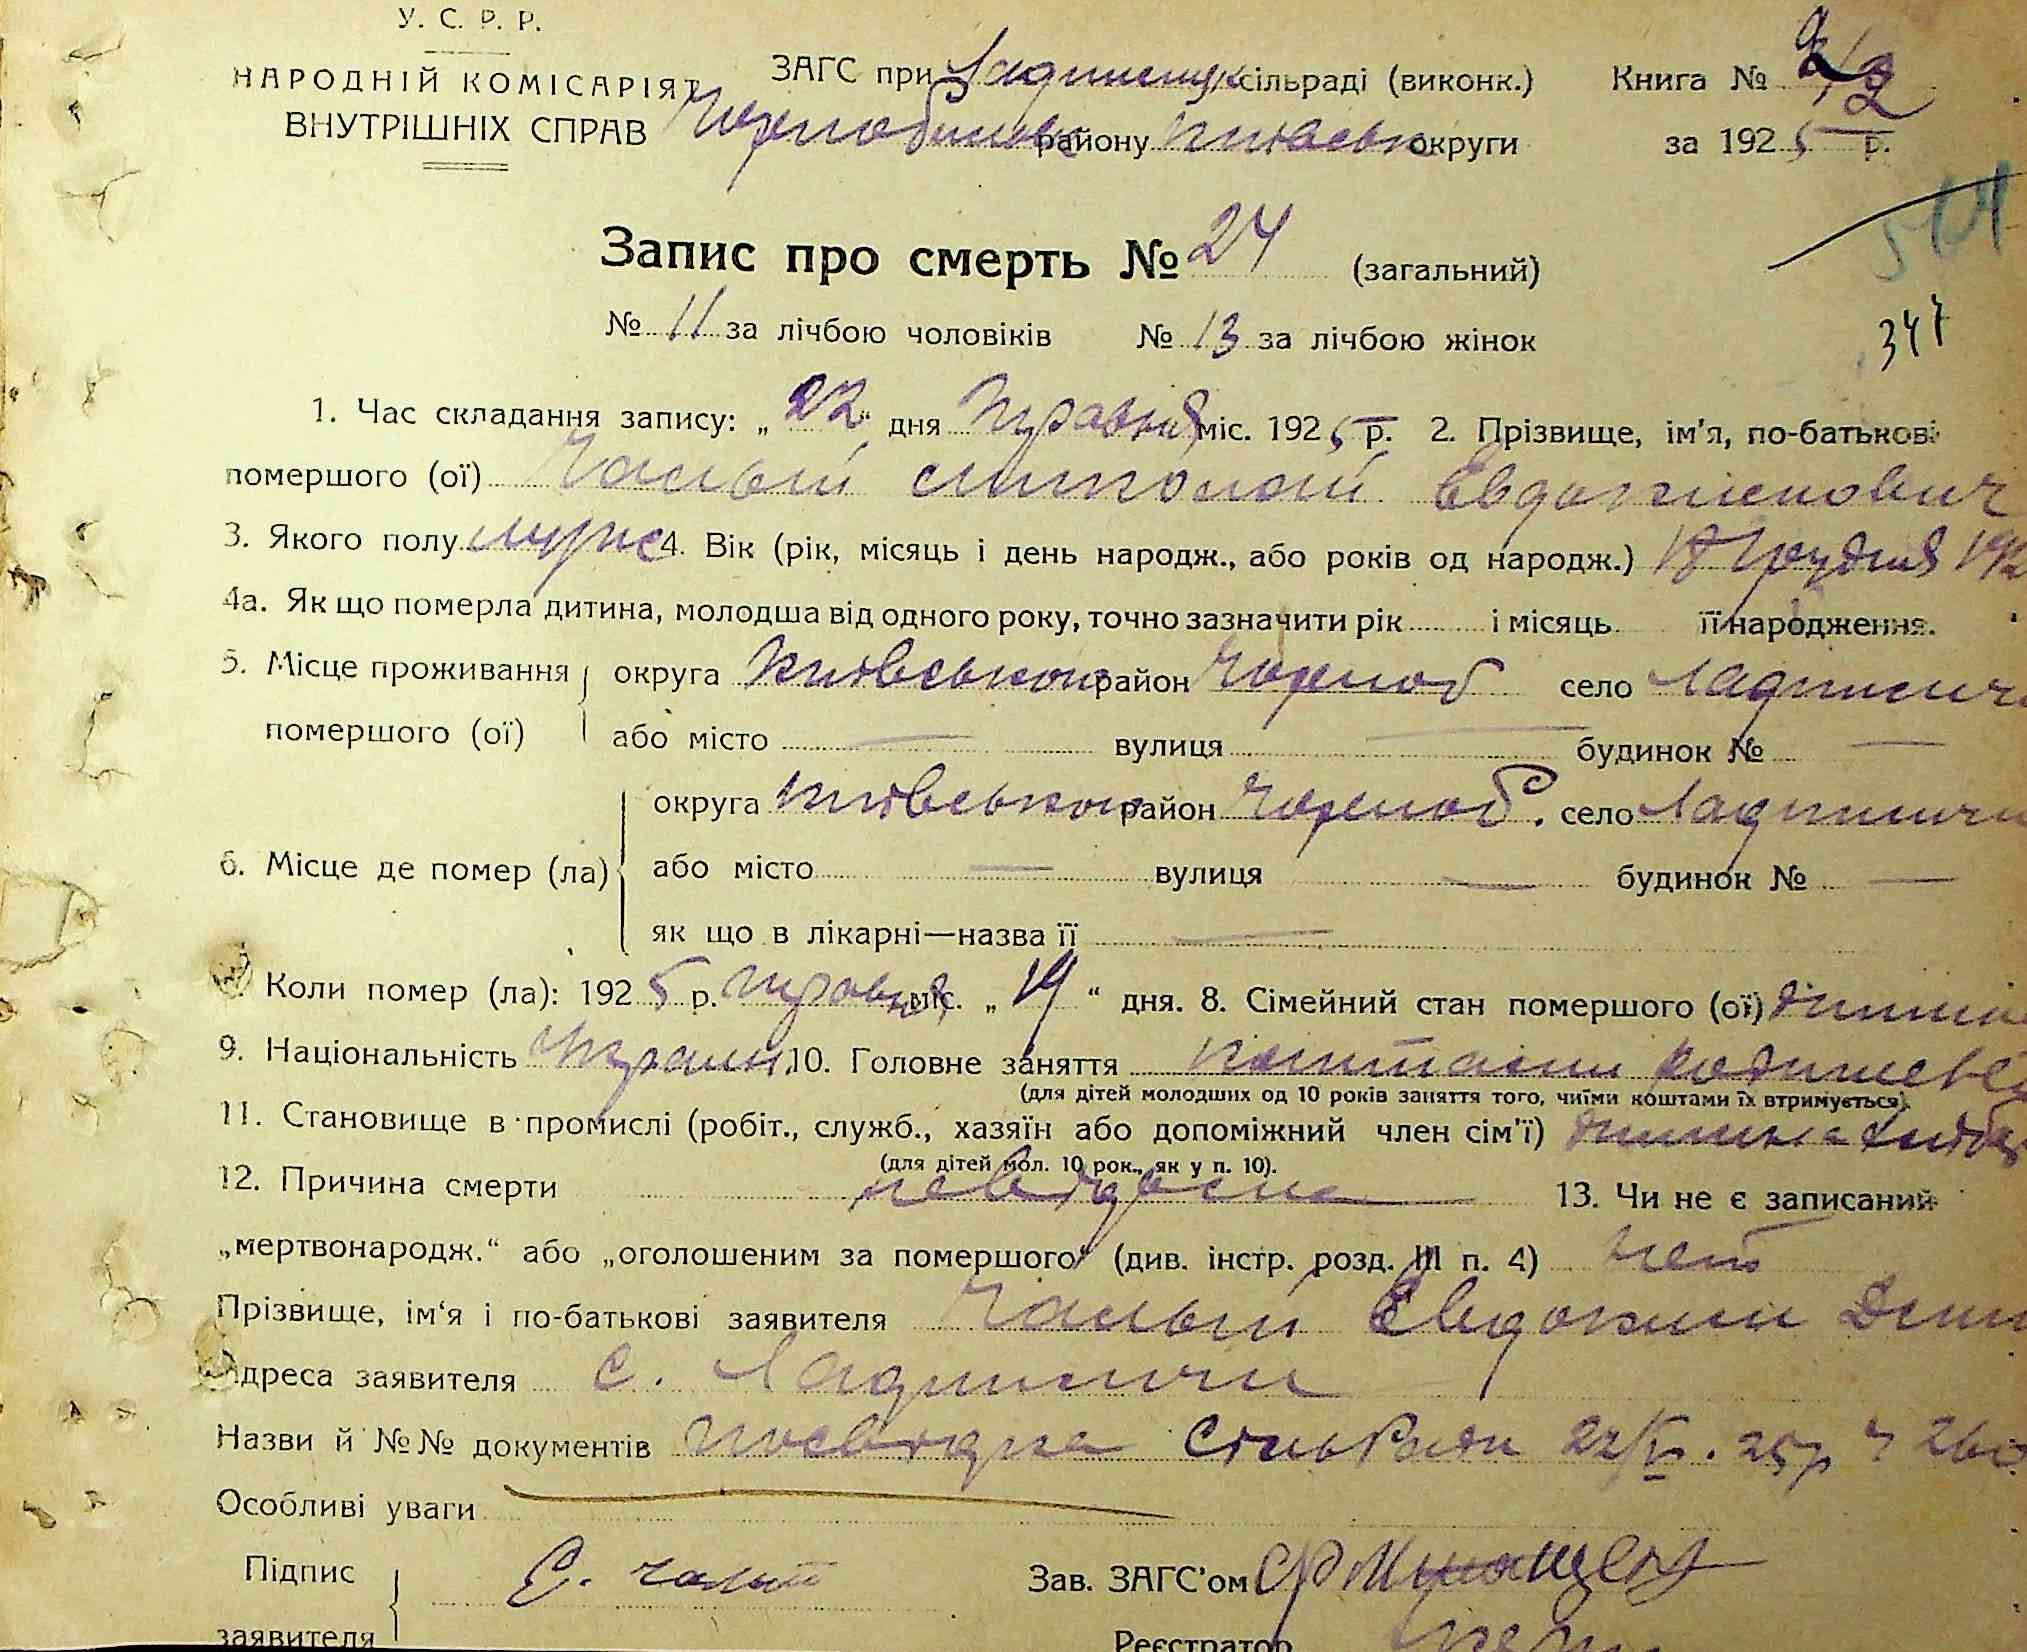 У. С. Р. Р.
НАРОДНІЙ КОМІСАРІЯТ
ВНУТРІШНІХ СПРАВ
ЗАГС при Ладижицьк сільраді (виконк.)
Чорнобильськ району Київськ округи
Книга №
за 1925 р.
514
347
Запис про смерть № 24 (загальний)
№ 11 за лічбою чоловіків № 13 за лічбою жінок
1. Час складання запису: „22“ дня Травня міс. 1925 р. 2. Прізвище, ім'я, по-батькові
помершого (ої) Чалый Евдокимович
3. Якого полу муже 4. Вік (рік, місяць і день народж., або років од народж.) 18 Грудня 192
4а. Як що померла дитина, молодша від одного року, точно зазначити рік і місяць її народження.
5. Місце проживання помершого (ої) округа Київської район Чорноб село Ладижичі
або місто — вулиця — будинок № —
6. Місце де помер (ла) округа Київської район Чорноб. село Ладижичи
або місто — вулиця — будинок № —
як що в лікарні—назва її —
Коли помер (ла): 1925 р. травня міс. „19“ дня. 8. Сімейний стан помершого (ої) дитина
9. Національність Украин. 10. Головне заняття коштами родителей
(для дітей молодших од 10 років заняття того, чиїми коштами їх втримується).
11. Становище в промислі (робіт., служб., хазяїн або допоміжний член сім'ї) дитина
(для дітей мол. 10 рок., як у п. 10).
12. Причина смерти невідома 13. Чи не є записаний
„мертвонародж.“ або „оголошеним за помершого“ (див. інстр. розд. III п. 4) нет
Прізвище, ім'я і по-батькові заявителя Чалый Евдоким Дем
Адреса заявителя с. Ладижичи
Назви й №№ документів посвідка Сільради 22/V. 25р Ч 260
Особливі уваги
Підпис заявителя Е. Чалый
Зав. ЗАГС'ом
Реєстратор